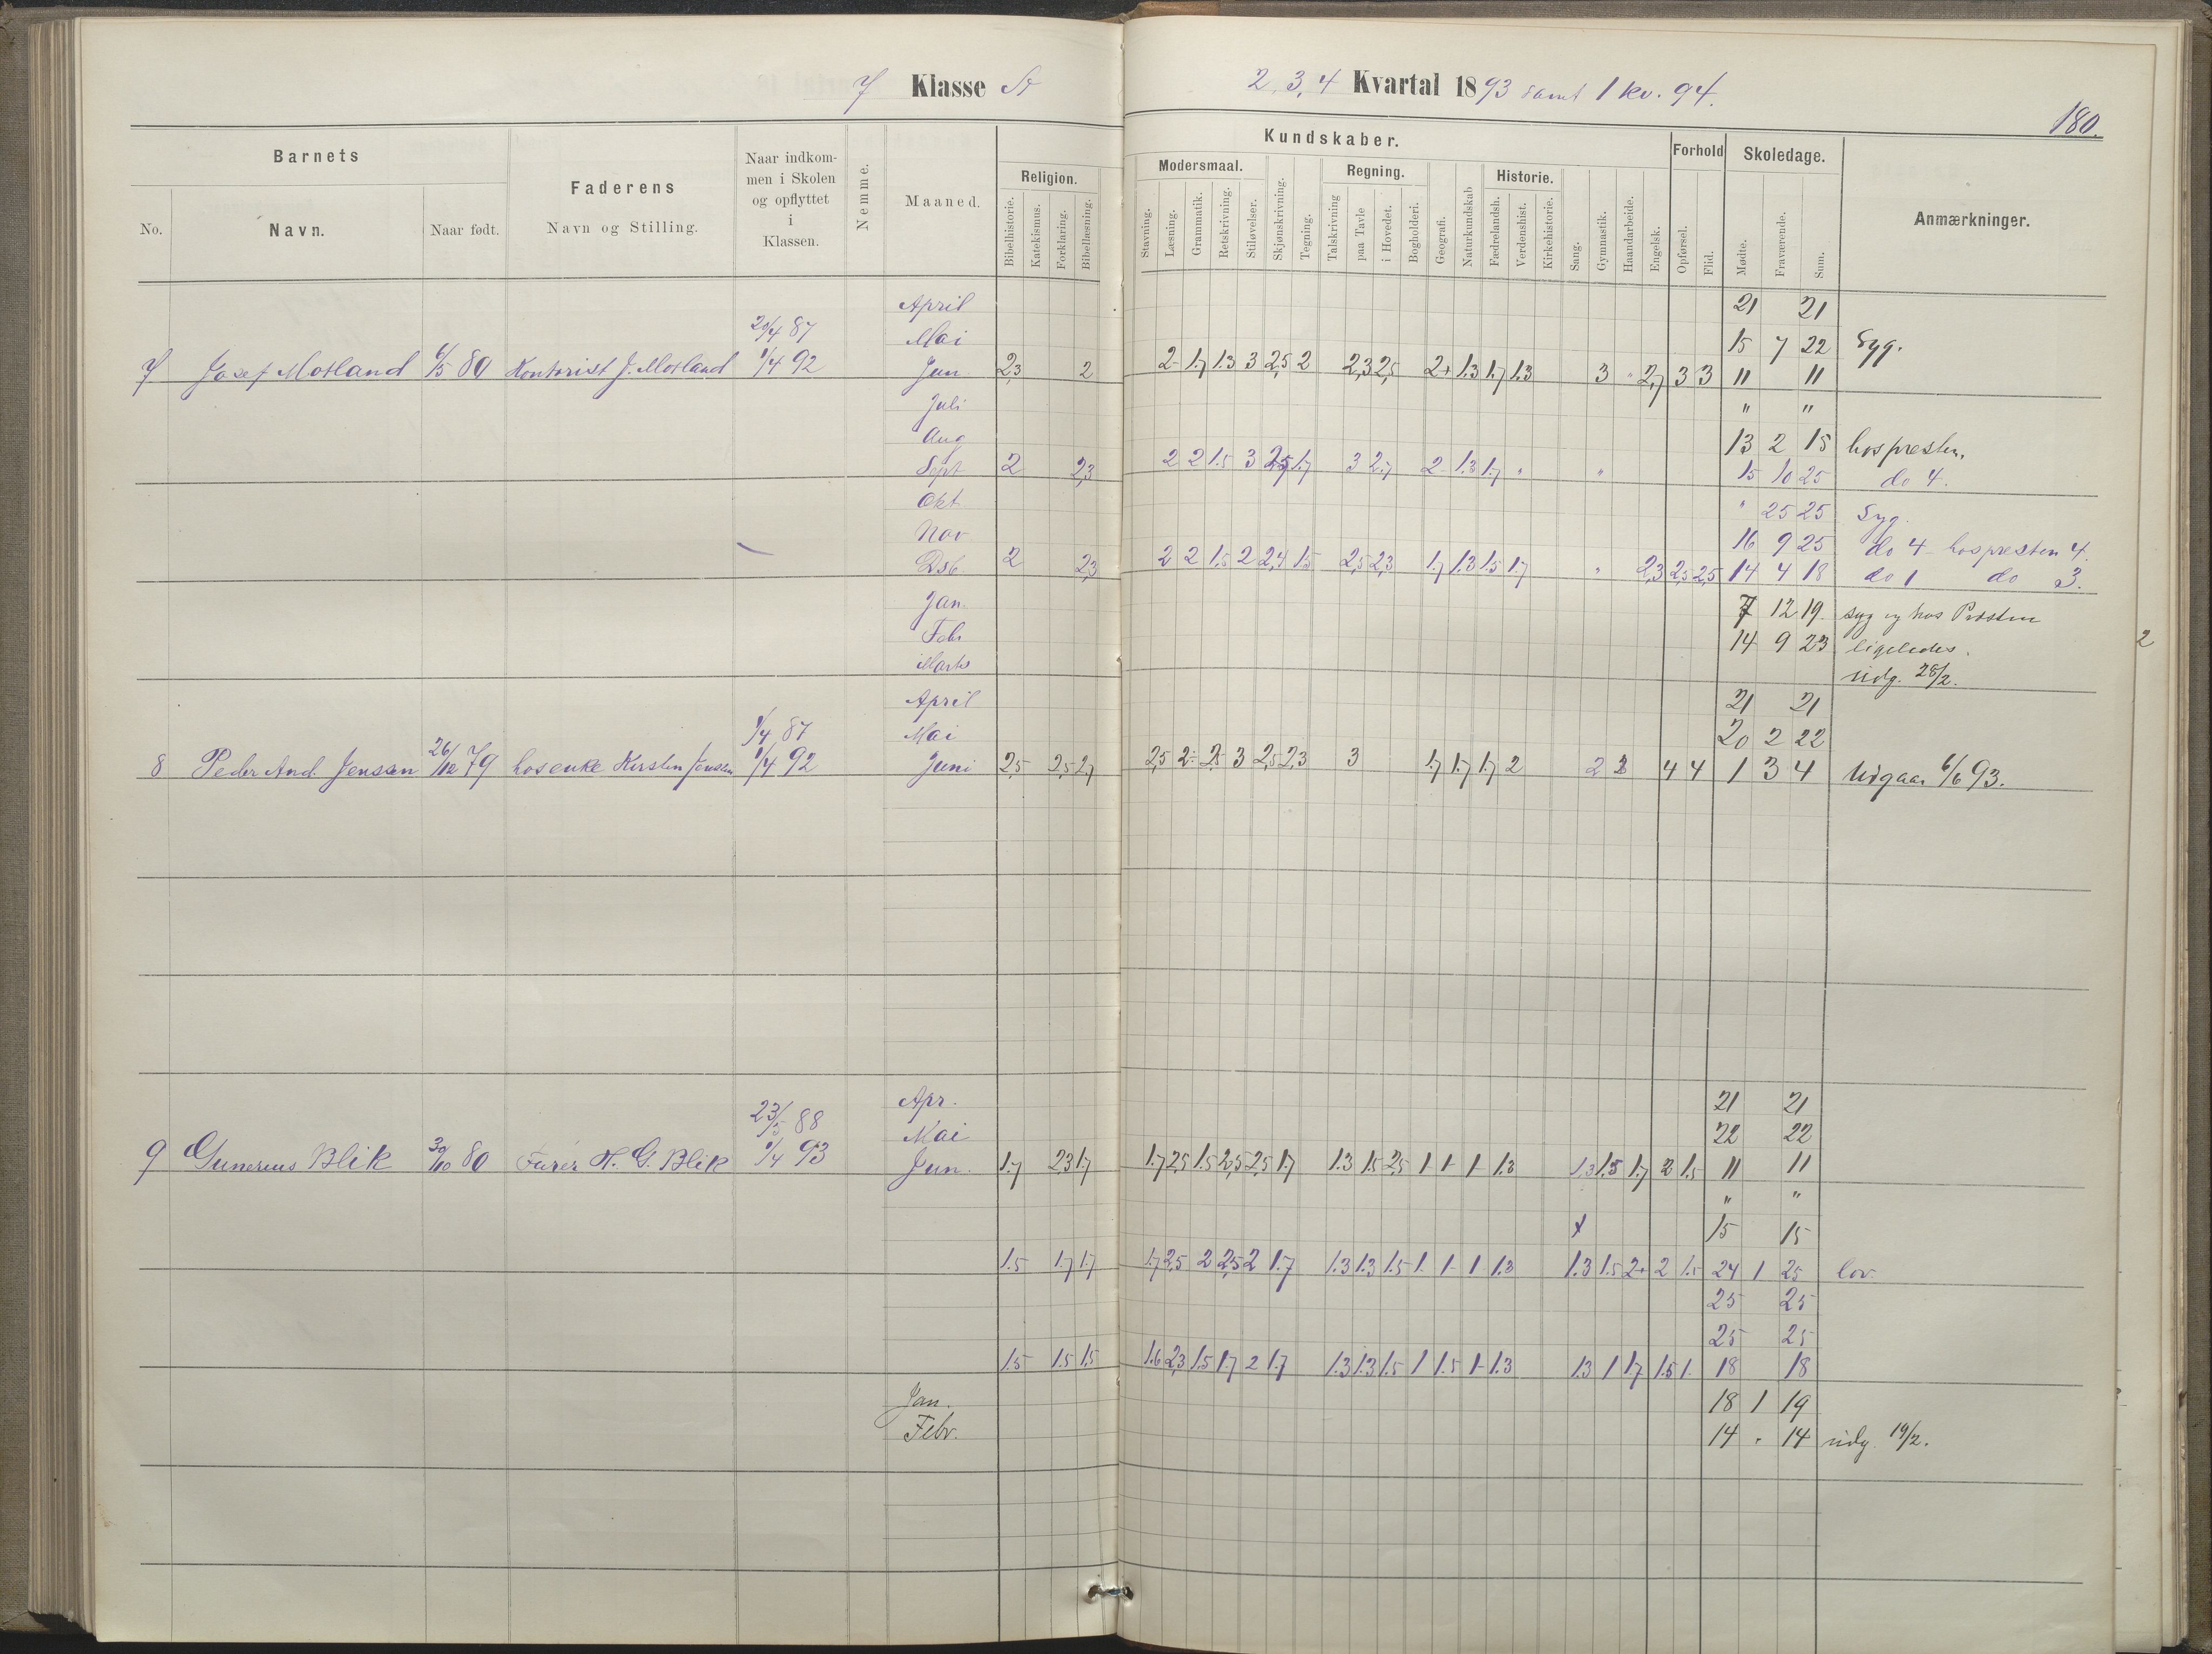 7 Klasse A
2, 3, 4 Kvartal 1893 samt 1 kv. 94.
180.
Barnets
Faderens
Naar indkommen i Skolen og opflyttet i Klassen.
Nemme.
Maaned.
Religion.
Kundskaber.
Modersmaal.
Regning.
Historie.
Forhold
Skoledage.
Anmærkninger.
No.
Navn.
Naar født.
Navn og Stilling.
Bibelhistorie. Katekismus. Forklaring. Bibellæsning.
Stavning. Læsning. Grammatik. Retskrivning. Stiløvelser. Skjønskrivning. Tegning. Talskrivning paa Tavle i Hovedet. Bogholderi. Geografi. Naturkundskab Fædrelandsh. Verdenshist. Kirkehistorie. Sang. Gymnastik. Haandarbeide. Engelsk. Opførsel. Flid. Mødte. Fraværende. Sum.
April 21 21
20/4 87 Mai 15 7 22 Syg.
7 Josef Mosland 6/5 80 Kontorist J. Mosland 1/4 92 Jun. 2,3 2 2- 1.7 1.3 3 2,5 2 2,3 2,5 2+ 1.3 1.7 1.3 3 " 2,7 3 3 11 11
Juli " "
Aug 13 2 15 hos presten.
Sept 2 2,3 2 2 1.5 3 2,5 1.7 3 2.7 2 1.3 1.7 " " 15 10 25 do 4.
Okt " 25 25 Syg.
Nov 16 9 25 do 4 hos presten 4.
Dsb. 2 2,3 2 2 1.5 2 2,4 1.5 2,5 2,3 1.7 1.3 1.5 1.7 " 2,3 2,5 2,5 14 4 18 do 1 do 3.
Jan. 7 12 19. syg og hos Presten
Febr 14 9 23 ligeledes.
Marts udg. 28/2.
2
April 21 21
1/4 87 Mai 20 2 22
8 Peder And. Jensen 26/12 79 hos enke Kirsten Jensen 1/4 92 Juni 2,5 2,5 2,7 2,5 2- 2,5 3 2,5 2,3 3 1.7 1.7 1.7 2 2 4 4 1 3 4 Udgaar 6/6 93.
Apr. 21 21
23/5 88 Mai 22 22
9 Gunerius Blik 30/10 80 Furér H. G. Blik 1/4 93 Jun. 1.7 2,3 1.7 1.7 2,5 1.5 2,5 2,5 1.7 1.3 1.5 2,5 1- 1- 1- 1.3 1.3 1.5 1.7 2 1.5 11 11
" "
15 15
1.5 1.7 1.7 1.7 2,5 2 2,5 2 1.7 1.3 1.3 1.5 1. 1- 1 1.3 1.3 1.5 2+ 2 1.5 24 1 25 lov
25 25
25 25
1.5 1.5 1.5 1.6 2,3 1.5 1.7 2 1.7 1.3 1.3 1.5 1 1.5 1- 1.3 1.3 1 1.7 1.5 1. 18 18
Jan. 18 1 19
Febr. 14 " 14 udg. 19/2.